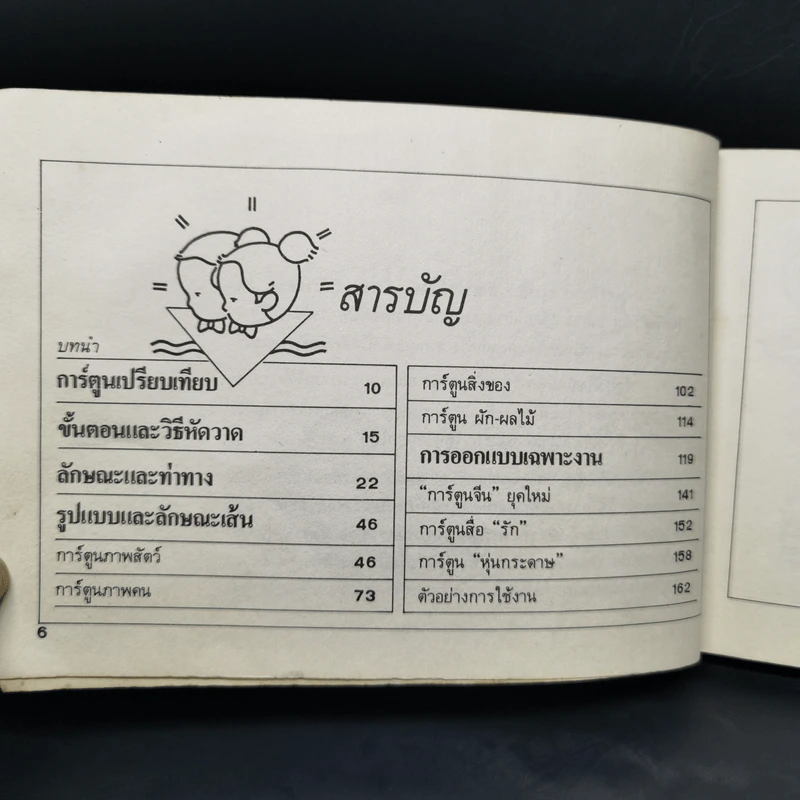 สารบัญ
บทนำ
การ์ตูนเปรียบเทียบ 10
ขั้นตอนและวิธีหัดวาด 15
ลักษณะและท่าทาง 22
รูปแบบและลักษณะเส้น 46
การ์ตูนภาพสัตว์ 46
การ์ตูนภาพคน 73
การ์ตูนสิ่งของ 102
การ์ตูน ผัก-ผลไม้ 114
การออกแบบเฉพาะงาน 119
"การ์ตูนจีน" ยุคใหม่ 141
การ์ตูนสื่อ "รัก" 152
การ์ตูน "หุ่นกระดาษ" 158
ตัวอย่างการใช้งาน 162
6